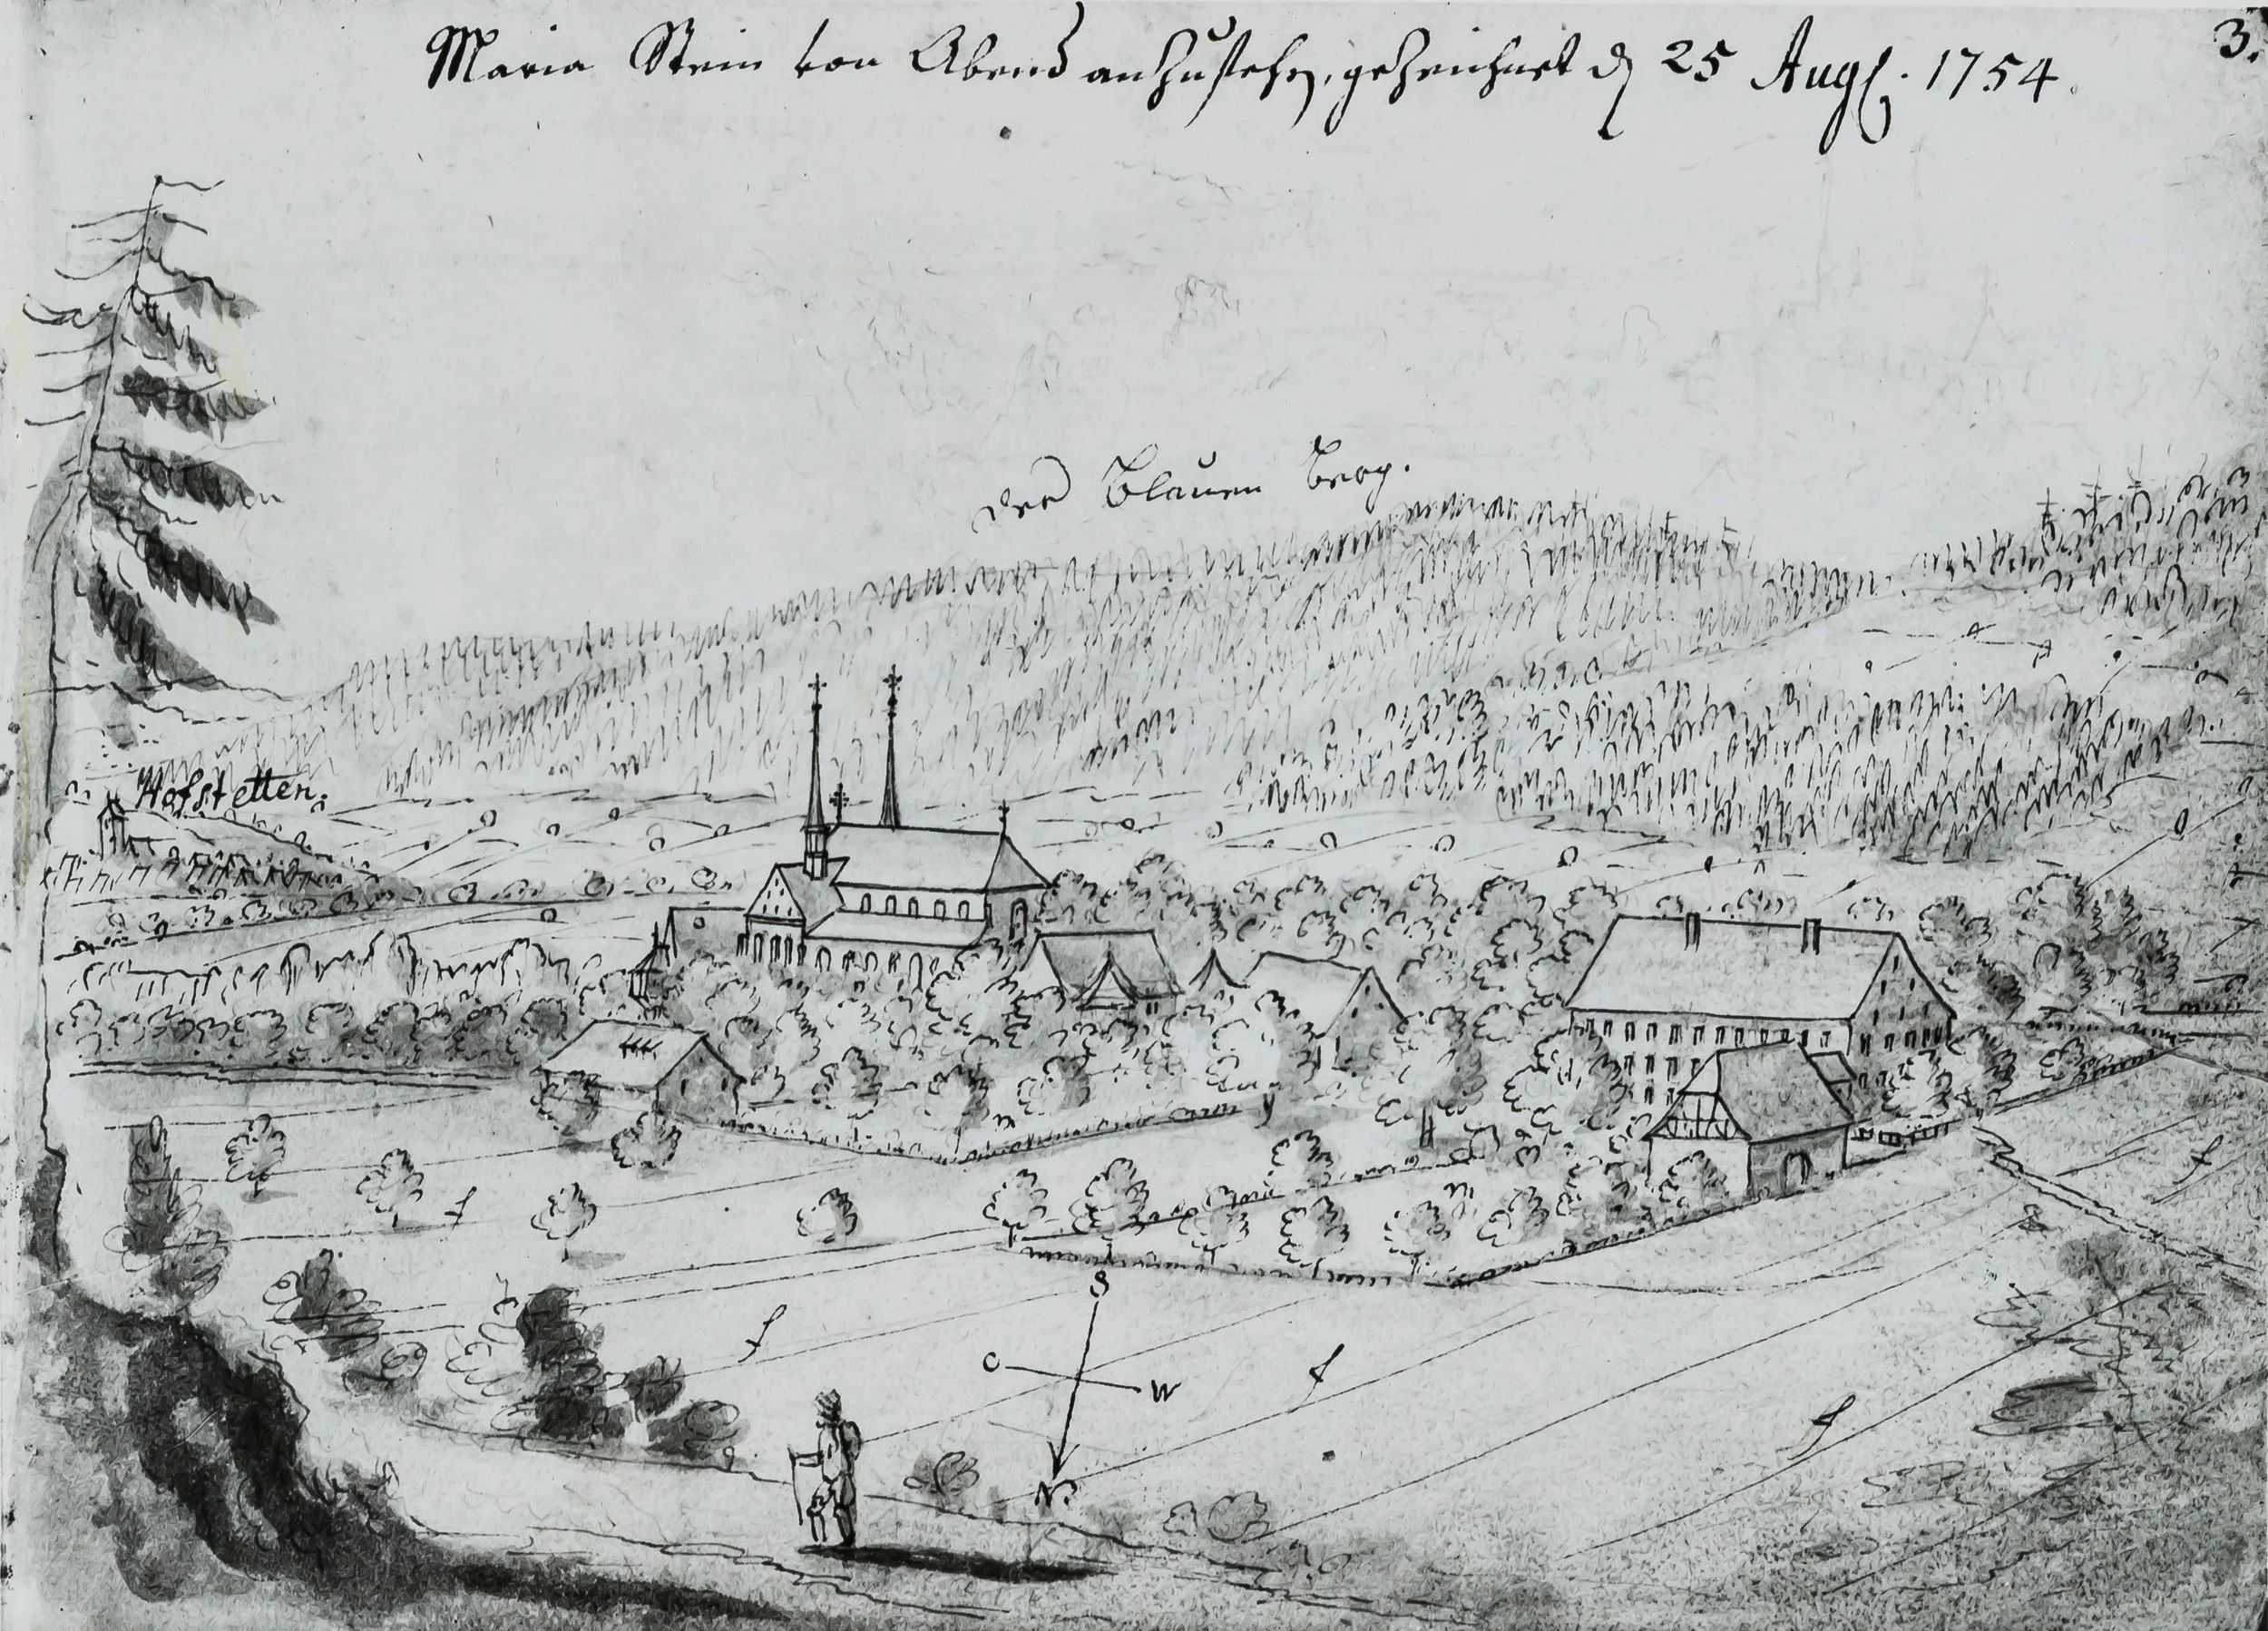 3.
Maria Stein von Abend anzusehen, gezeichnet d 25 Augs. 1754.
der Blauen Berg.
Hofstetten.
f
f
f
f
f
S
O W
N.